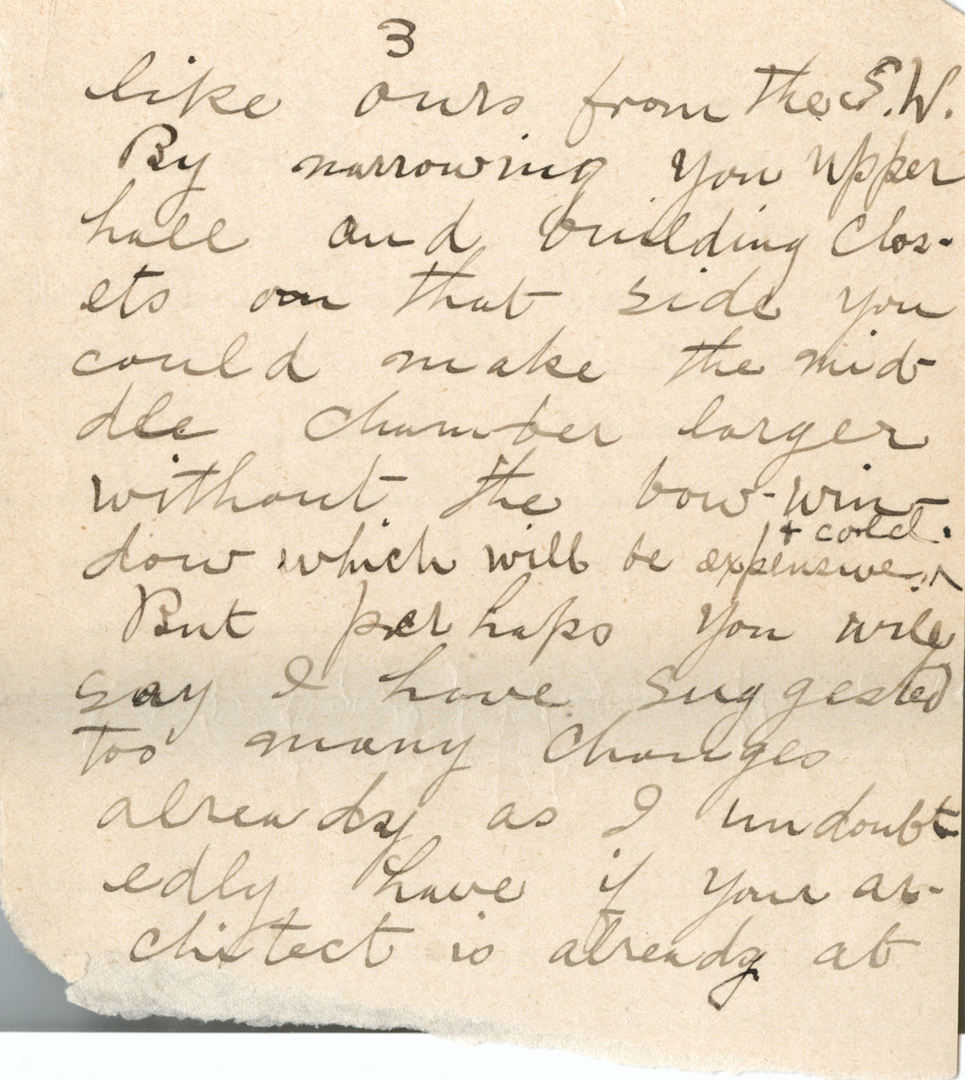 3
like ours from the S.W.
By narrowing you upper
hall and building clos-
ets on that side you
could make the mid-
dle chamber larger
without the bow-win-
+ cold.
dow which will be expensive ^
But perhaps you will
say I have suggested
too many changes
already as I undoubt-
edly have if your ar-
chitect is already at